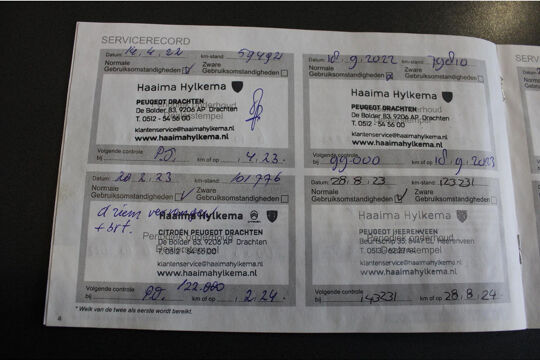 SERVICERECORD
Datum: 14.4.22 km-stand: 59492
Normale Gebruiksomstandigheden Zware Gebruiksomstandigheden
Haaima Hylkema
PEUGEOT DRACHTEN
De Bolder 83, 9206 AP Drachten
T. 0512 - 54 56 00
klantenservice@haaimahylkema.nl
www.haaimahylkema.nl
Volgende controle
bij km of op 4.23.
Datum: 10.9.2022 km-stand:
Normale Gebruiksomstandigheden Zware Gebruiksomstandigheden
Haaima Hylkema
PEUGEOT DRACHTEN
De Bolder 83, 9206 AP Drachten
T. 0512 - 54 56 00
klantenservice@haaimahylkema.nl
www.haaimahylkema.nl
Volgende controle
bij 99.000 km of op 10.9.2023
Datum: 20.2.23 km-stand: 101776
Normale Gebruiksomstandigheden Zware Gebruiksomstandigheden
d riem
+ brt.
Haaima Hylkema
CITROËN PEUGEOT DRACHTEN
De Bolder 83, 9206 AP Drachten
T. 0512 - 54 56 00
klantenservice@haaimahylkema.nl
www.haaimahylkema.nl
Volgende controle
bij 122.000 km of op 2.24.
Datum: 28.8.23 km-stand: 123231
Normale Gebruiksomstandigheden Zware Gebruiksomstandigheden
Haaima Hylkema
PEUGEOT HEERENVEEN
8447 GL Heerenveen
klantenservice@haaimahylkema.nl
www.haaimahylkema.nl
Volgende controle
bij 143231 km of op 28.8.24
* Welk van de twee als eerste wordt bereikt.